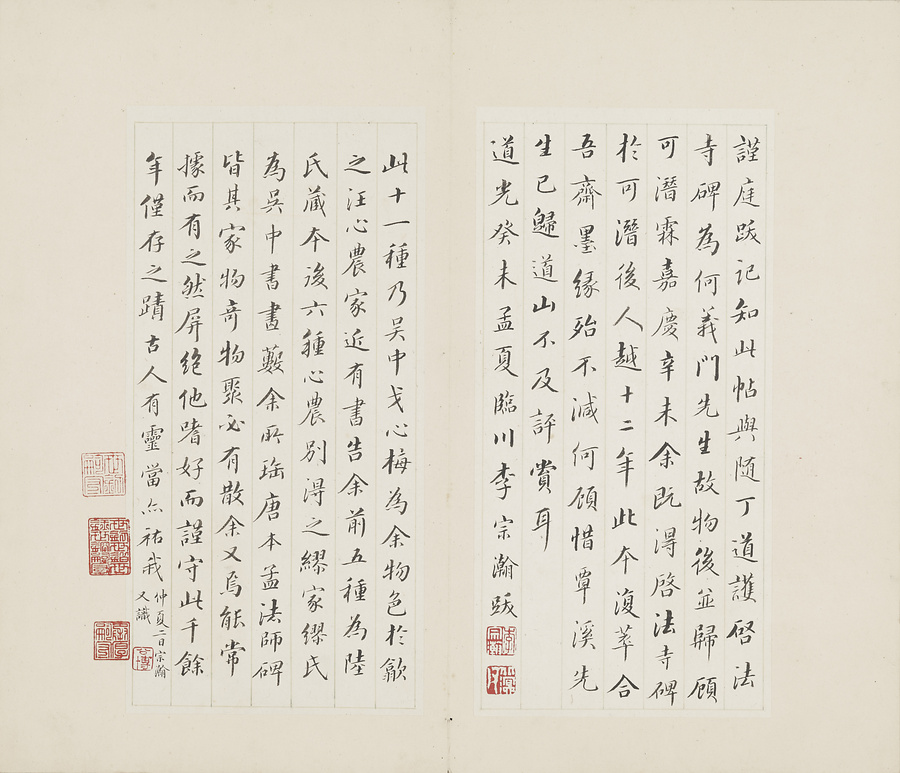 謹庭跋記知此帖與隨丁道護啓法
寺碑為何義門先生故物後並歸顧
可潛霖嘉慶辛未余既得啓法寺碑
於可潛後人越十二年此本復萃合
吾齋墨緣殆不減何顧惜覃溪先
生已歸道山不及評賞耳
道光癸未孟夏臨川李宗瀚跋
此十一種乃吴中戈心梅為余物色於歙
之汪心農家近有書告余前五種為陸
氏藏本後六種心農別得之繆家繆氏
為吴中書畫藪余所臨唐本孟法師碑
皆其家物奇物聚必有散余又焉能常
據而有之然屏絶他嗜好而謹守此千餘
年僅存之蹟古人有靈當亦祐我
仲夏二日宗瀚
又識